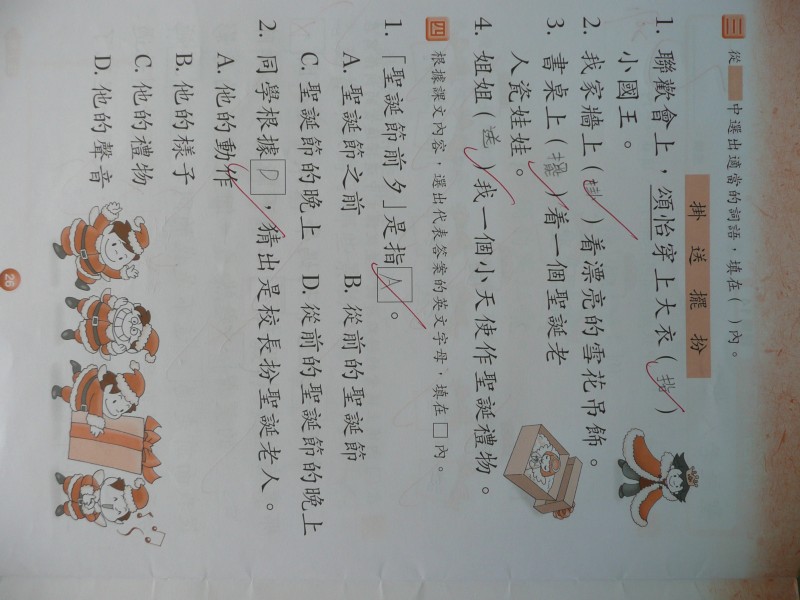 三 從　中選出適當的詞語，填在( )內。
掛 送 擺 扮
1. 聯歡會上，頌怡穿上大衣(扮)
小國王。
2. 我家牆上(掛)着漂亮的雪花吊飾。
3. 書桌上(擺)着一個聖誕老
人瓷娃娃。
4. 姐姐(送)我一個小天使作聖誕禮物。
四 根據課文內容，選出代表答案的英文字母，填在□內。
1. 「聖誕節前夕」是指A。
A. 聖誕節之前 B. 從前的聖誕節
C. 聖誕節的晚上 D. 從前的聖誕節的晚上
2. 同學根據D，猜出是校長扮聖誕老人。
A. 他的動作
B. 他的樣子
C. 他的禮物
D. 他的聲音
26